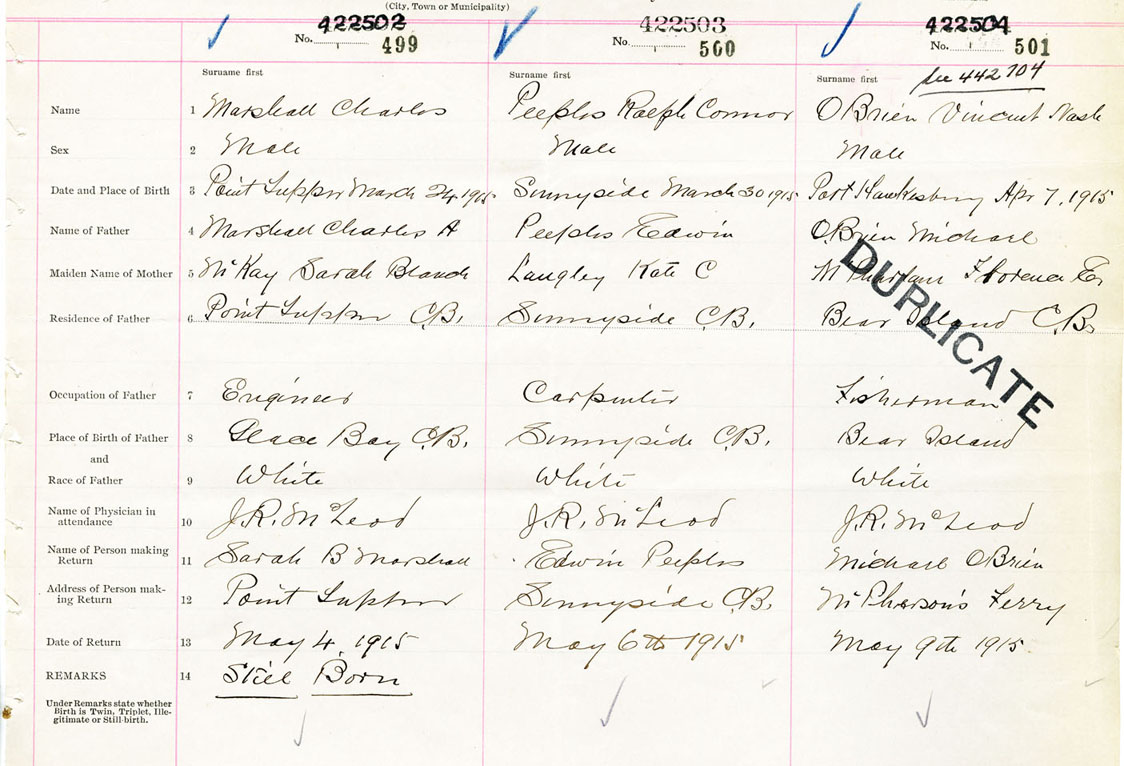 (City, Town or Municipality)
422502 422503 422504
No. 499 No. 500 No. 501
Surname first Surname first Surname first See 442704
Name 1 Marshall Charles Peeples Ralph Connor O'Brien Vincent Nash
Sex 2 Male Male Male
Date and Place of Birth 3 Point Tupper March 24, 1915 Sunnyside March 30 1915 Port Hawkesbury Apr 7, 1915
Name of Father 4 Marshall Charles A Peeples Edwin O'Brien Michael
Maiden Name of Mother 5 McKay Sarah Blanch Langley Kate C Florence
Residence of Father 6 Point Tupper C.B. Sunnyside C.B. Bear Island C.B.
DUPLICATE
Occupation of Father 7 Engineer Carpenter Fisherman
Place of Birth of Father 8 Glace Bay C.B. Sunnyside C.B. Bear Island
and
Race of Father 9 White White White
Name of Physician in
attendance 10 J.R. McLeod J.R. McLeod J.R. McLeod
Name of Person making
Return 11 Sarah B Marshall Edwin Peeples Michael O'Brien
Address of Person mak-
ing Return 12 Point Tupper Sunnyside C.B. McPherson's Ferry
Date of Return 13 May 4, 1915 May 6th 1915 May 9th 1915.
REMARKS 14 Still Born
Under Remarks state whether
Birth is Twin, Triplet, Ille-
gitimate or Still-birth.